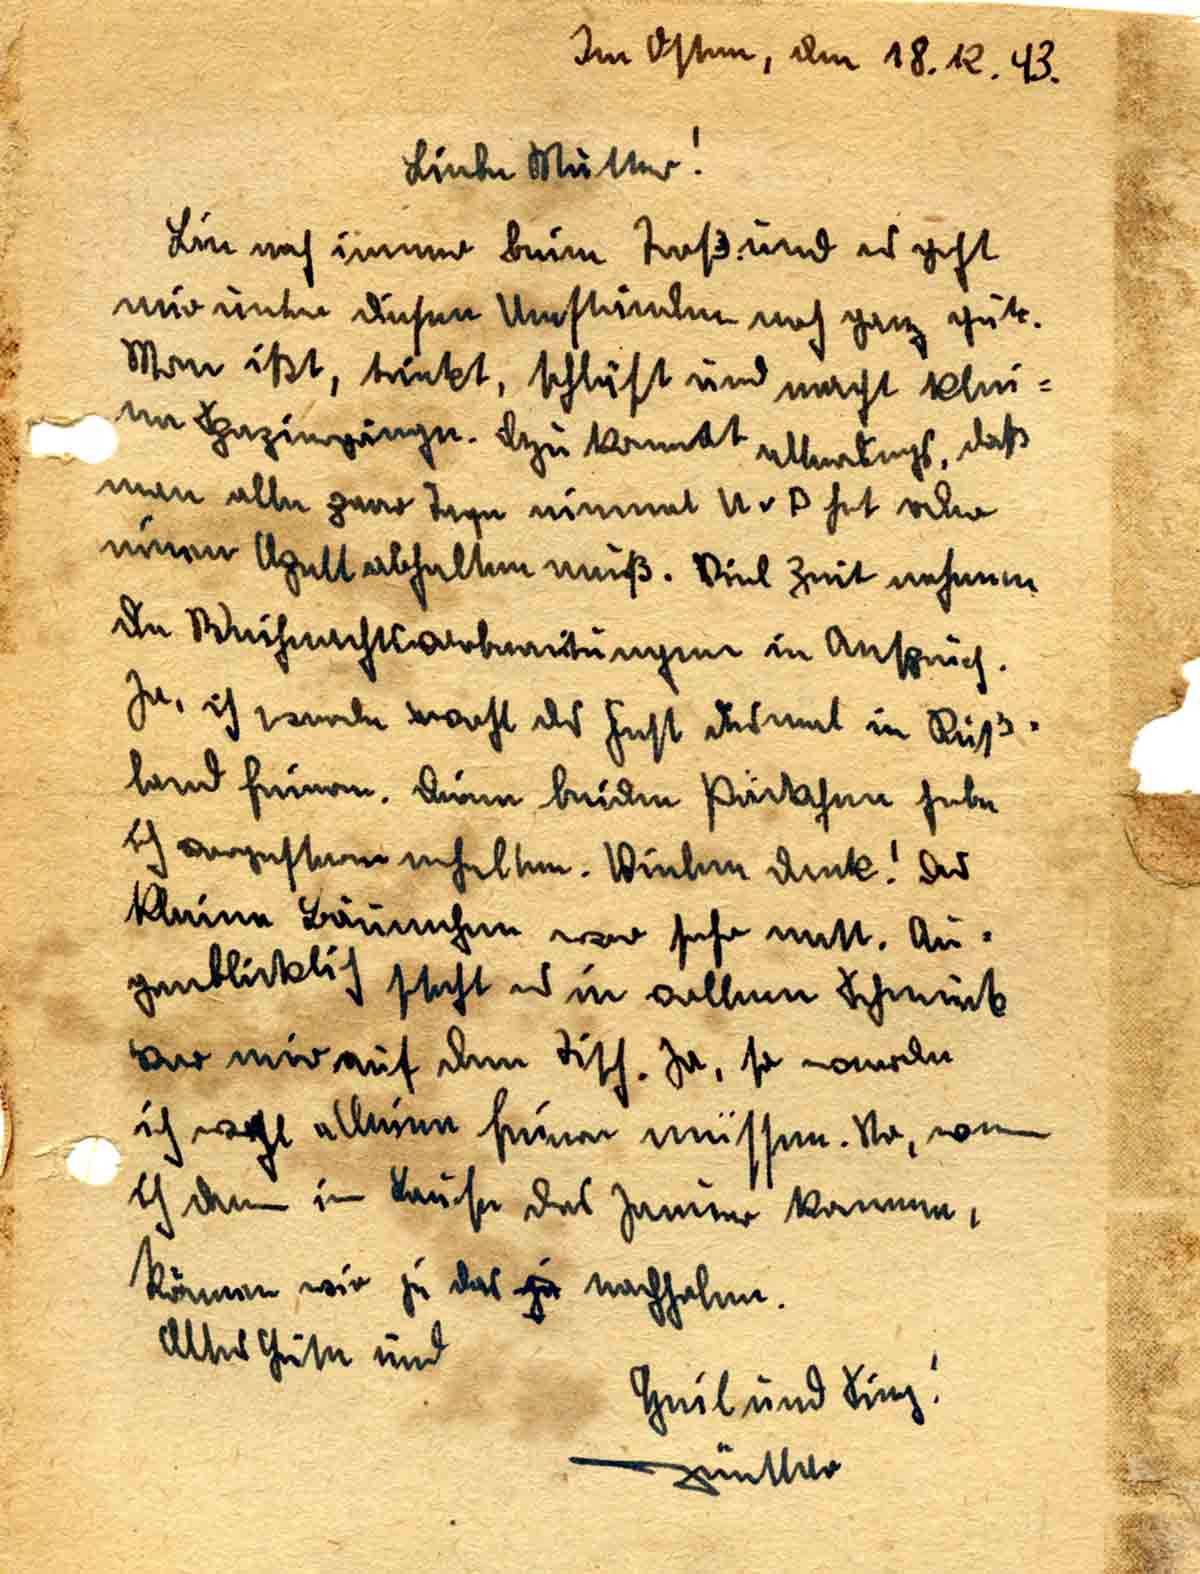 Im Osten, den 18.12.43.
Liebe Mutter!
Bin noch immer beim Troß und es geht
mir unter diesen Umständen noch ganz gut.
Man ißt, trinkt, schläft und macht klei=
ne Spaziergänge. Dazu kommt allerdings, daß
man alle paar Tage einmal UvD hat oder
einen Apell abhalten muß. Viel Zeit nehmen
die Weihnachtsvorbereitungen in Anspruch.
Ja, ich werde wohl das Fest diesmal in Ruß=
land feiern. Deine beiden Päckchen habe
ich vorgestern erhalten. Vielen Dank! Das
kleine Bäumchen war sehr nett. Au=
genblicklich steht es in vollem Schmuck
vor mir auf dem Tisch. Ja, so werde
ich wohl alleine feiern müssen. Na, wenn
ich dann im Laufe des Januar komme,
können wir ja das nachholen.
Alles Gute und
Heil und Sieg!
Günther